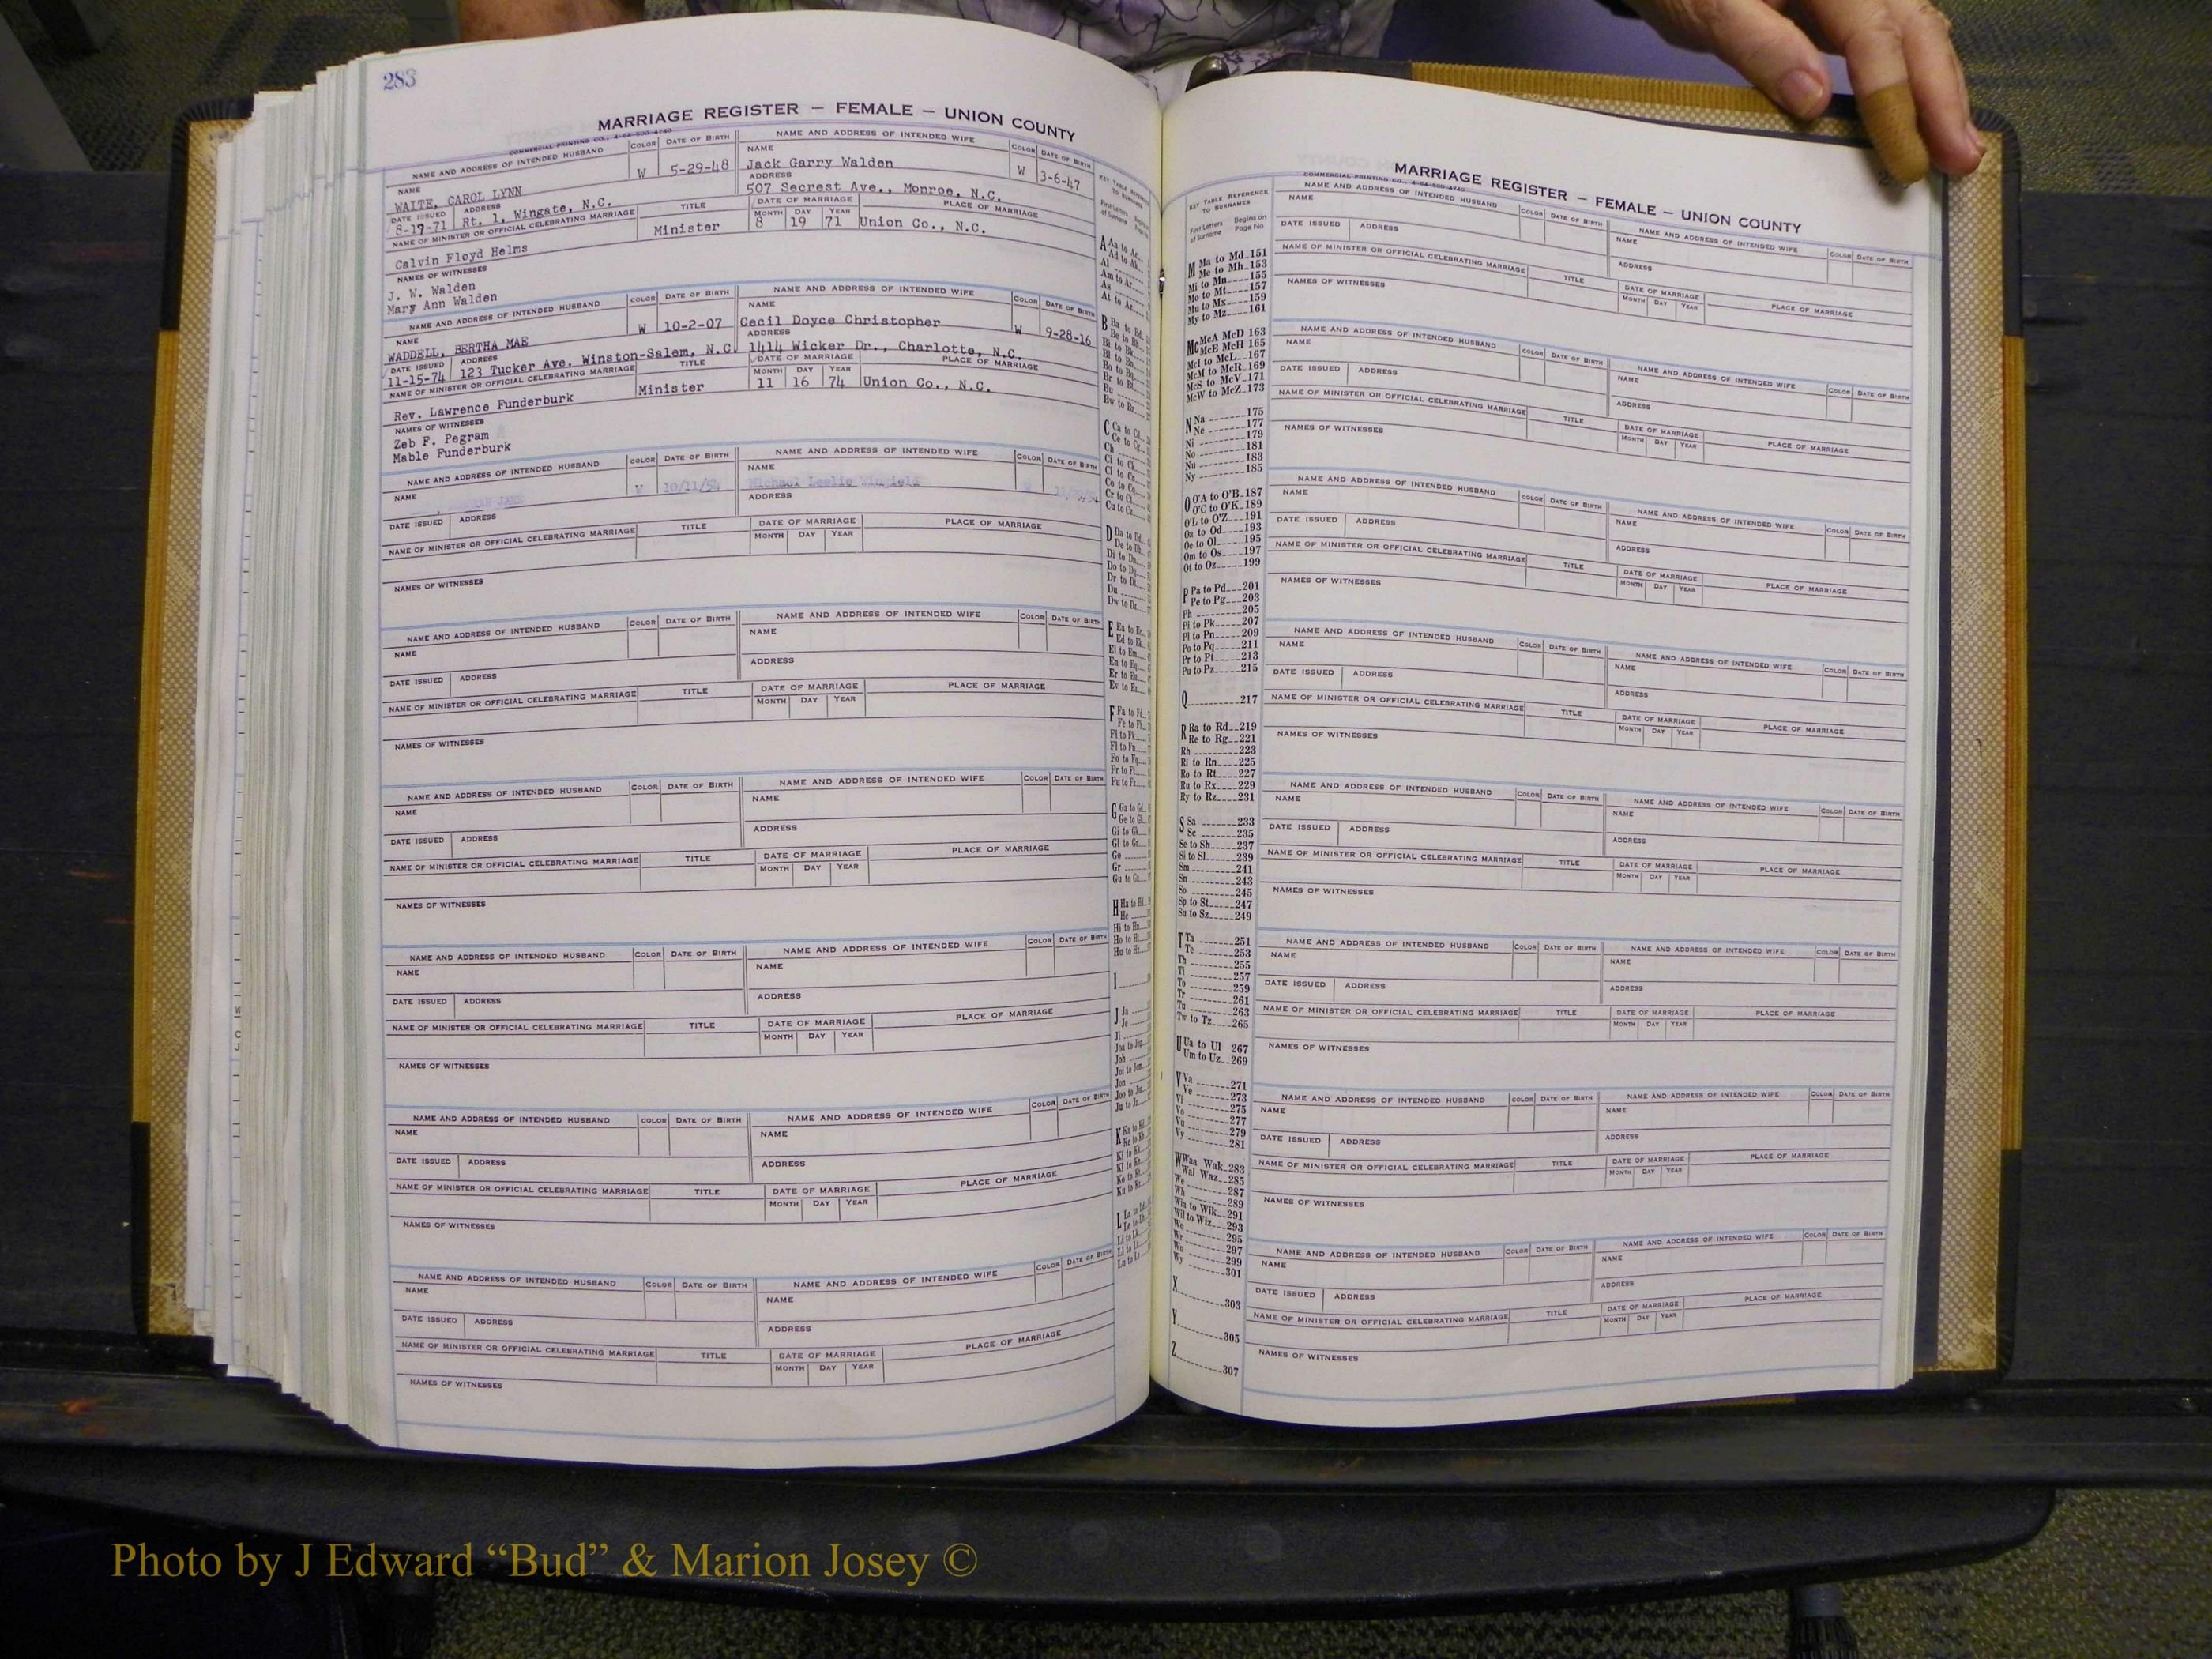 283
MARRIAGE REGISTER — FEMALE — UNION COUNTY
COMMERCIAL PRINTING CO., 4-64-500-4740
NAME AND ADDRESS OF INTENDED HUSBAND COLOR DATE OF BIRTH NAME AND ADDRESS OF INTENDED WIFE COLOR DATE OF BIRTH
NAME W 5-29-48 NAME Jack Garry Walden W 3-6-47
WAITE, CAROL LYNN ADDRESS
DATE ISSUED ADDRESS 507 Secrest Ave., Monroe, N.C.
8-17-71 Rt. 1, Wingate, N.C.
NAME OF MINISTER OR OFFICIAL CELEBRATING MARRIAGE TITLE DATE OF MARRIAGE PLACE OF MARRIAGE
MONTH DAY YEAR
Calvin Floyd Helms Minister 8 19 71 Union Co., N.C.
NAMES OF WITNESSES
J. W. Walden
Mary Ann Walden
NAME AND ADDRESS OF INTENDED HUSBAND COLOR DATE OF BIRTH NAME AND ADDRESS OF INTENDED WIFE COLOR DATE OF BIRTH
NAME W 10-2-07 NAME Cecil Doyce Christopher W 9-28-16
WADDELL, BERTHA MAE ADDRESS
DATE ISSUED ADDRESS 1414 Wicker Dr., Charlotte, N.C.
11-15-74 123 Tucker Ave. Winston-Salem, N.C.
NAME OF MINISTER OR OFFICIAL CELEBRATING MARRIAGE TITLE DATE OF MARRIAGE PLACE OF MARRIAGE
MONTH DAY YEAR
Rev. Lawrence Funderburk Minister 11 16 74 Union Co., N.C.
NAMES OF WITNESSES
Zeb F. Pegram
Mable Funderburk
NAME AND ADDRESS OF INTENDED HUSBAND COLOR DATE OF BIRTH NAME AND ADDRESS OF INTENDED WIFE COLOR DATE OF BIRTH
NAME JANE W 10/11/54 NAME Michael Leslie Winfield
DATE ISSUED ADDRESS ADDRESS
NAME OF MINISTER OR OFFICIAL CELEBRATING MARRIAGE TITLE DATE OF MARRIAGE PLACE OF MARRIAGE
MONTH DAY YEAR
NAMES OF WITNESSES
NAME AND ADDRESS OF INTENDED HUSBAND COLOR DATE OF BIRTH NAME AND ADDRESS OF INTENDED WIFE COLOR DATE OF BIRTH
NAME NAME
DATE ISSUED ADDRESS ADDRESS
NAME OF MINISTER OR OFFICIAL CELEBRATING MARRIAGE TITLE DATE OF MARRIAGE PLACE OF MARRIAGE
MONTH DAY YEAR
NAMES OF WITNESSES
NAME AND ADDRESS OF INTENDED HUSBAND COLOR DATE OF BIRTH NAME AND ADDRESS OF INTENDED WIFE COLOR DATE OF BIRTH
NAME NAME
DATE ISSUED ADDRESS ADDRESS
NAME OF MINISTER OR OFFICIAL CELEBRATING MARRIAGE TITLE DATE OF MARRIAGE PLACE OF MARRIAGE
MONTH DAY YEAR
NAMES OF WITNESSES
NAME AND ADDRESS OF INTENDED HUSBAND COLOR DATE OF BIRTH NAME AND ADDRESS OF INTENDED WIFE COLOR DATE OF BIRTH
NAME NAME
DATE ISSUED ADDRESS ADDRESS
NAME OF MINISTER OR OFFICIAL CELEBRATING MARRIAGE TITLE DATE OF MARRIAGE PLACE OF MARRIAGE
MONTH DAY YEAR
NAMES OF WITNESSES
NAME AND ADDRESS OF INTENDED HUSBAND COLOR DATE OF BIRTH NAME AND ADDRESS OF INTENDED WIFE COLOR DATE OF BIRTH
NAME NAME
DATE ISSUED ADDRESS ADDRESS
NAME OF MINISTER OR OFFICIAL CELEBRATING MARRIAGE TITLE DATE OF MARRIAGE PLACE OF MARRIAGE
MONTH DAY YEAR
NAMES OF WITNESSES
NAME AND ADDRESS OF INTENDED HUSBAND COLOR DATE OF BIRTH NAME AND ADDRESS OF INTENDED WIFE COLOR DATE OF BIRTH
NAME NAME
DATE ISSUED ADDRESS ADDRESS
NAME OF MINISTER OR OFFICIAL CELEBRATING MARRIAGE TITLE DATE OF MARRIAGE PLACE OF MARRIAGE
MONTH DAY YEAR
NAMES OF WITNESSES
MARRIAGE REGISTER — FEMALE — UNION COUNTY
COMMERCIAL PRINTING CO., 4-64-500-4740
KEY TABLE REFERENCE
TO SURNAMES
First Letters of Surname Begins on Page No
M Ma to Md 151
Me to Mh 153
Mi to Mn 155
Mo to Mt 157
Mu to Mx 159
My to Mz 161
Mc McA McD 163
McE McH 165
McI to McL 167
McM to McR 169
McS to McV 171
McW to McZ 173
N Na 175
Ne 177
Ni 179
No 181
Nu 183
Ny 185
O O'A to O'B 187
O'C to O'K 189
O'L to O'Z 191
Oa to Od 193
Oe to Ol 195
Om to Os 197
Ot to Oz 199
P Pa to Pd 201
Pe to Pg 203
Ph 205
Pi to Pk 207
Pl to Pn 209
Po to Pq 211
Pr to Pt 213
Pu to Pz 215
Q 217
R Ra to Rd 219
Re to Rg 221
Rh 223
Ri to Rn 225
Ro to Rt 227
Ru to Rx 229
Ry to Rz 231
S Sa 233
Sc 235
Se to Sh 237
Si to Sl 239
Sm 241
Sn 243
So 245
Sp to St 247
Su to Sz 249
T Ta 251
Te 253
Th 255
Ti 257
To 259
Tr 261
Tu 263
Tw to Tz 265
U Ua to Ul 267
Um to Uz 269
V Va 271
Ve 273
Vi 275
Vo 277
Vu 279
Vy 281
W Waa Wak 283
Wal Waz 285
We 287
Wh 289
Wia to Wik 291
Wil to Wiz 293
Wo 295
Wr 297
Wu 299
Wy 301
X 303
Y 305
Z 307
NAME AND ADDRESS OF INTENDED HUSBAND COLOR DATE OF BIRTH NAME AND ADDRESS OF INTENDED WIFE COLOR DATE OF BIRTH
NAME NAME
DATE ISSUED ADDRESS ADDRESS
NAME OF MINISTER OR OFFICIAL CELEBRATING MARRIAGE TITLE DATE OF MARRIAGE PLACE OF MARRIAGE
MONTH DAY YEAR
NAMES OF WITNESSES
NAME AND ADDRESS OF INTENDED HUSBAND COLOR DATE OF BIRTH NAME AND ADDRESS OF INTENDED WIFE COLOR DATE OF BIRTH
NAME NAME
DATE ISSUED ADDRESS ADDRESS
NAME OF MINISTER OR OFFICIAL CELEBRATING MARRIAGE TITLE DATE OF MARRIAGE PLACE OF MARRIAGE
MONTH DAY YEAR
NAMES OF WITNESSES
NAME AND ADDRESS OF INTENDED HUSBAND COLOR DATE OF BIRTH NAME AND ADDRESS OF INTENDED WIFE COLOR DATE OF BIRTH
NAME NAME
DATE ISSUED ADDRESS ADDRESS
NAME OF MINISTER OR OFFICIAL CELEBRATING MARRIAGE TITLE DATE OF MARRIAGE PLACE OF MARRIAGE
MONTH DAY YEAR
NAMES OF WITNESSES
NAME AND ADDRESS OF INTENDED HUSBAND COLOR DATE OF BIRTH NAME AND ADDRESS OF INTENDED WIFE COLOR DATE OF BIRTH
NAME NAME
DATE ISSUED ADDRESS ADDRESS
NAME OF MINISTER OR OFFICIAL CELEBRATING MARRIAGE TITLE DATE OF MARRIAGE PLACE OF MARRIAGE
MONTH DAY YEAR
NAMES OF WITNESSES
NAME AND ADDRESS OF INTENDED HUSBAND COLOR DATE OF BIRTH NAME AND ADDRESS OF INTENDED WIFE COLOR DATE OF BIRTH
NAME NAME
DATE ISSUED ADDRESS ADDRESS
NAME OF MINISTER OR OFFICIAL CELEBRATING MARRIAGE TITLE DATE OF MARRIAGE PLACE OF MARRIAGE
MONTH DAY YEAR
NAMES OF WITNESSES
NAME AND ADDRESS OF INTENDED HUSBAND COLOR DATE OF BIRTH NAME AND ADDRESS OF INTENDED WIFE COLOR DATE OF BIRTH
NAME NAME
DATE ISSUED ADDRESS ADDRESS
NAME OF MINISTER OR OFFICIAL CELEBRATING MARRIAGE TITLE DATE OF MARRIAGE PLACE OF MARRIAGE
MONTH DAY YEAR
NAMES OF WITNESSES
NAME AND ADDRESS OF INTENDED HUSBAND COLOR DATE OF BIRTH NAME AND ADDRESS OF INTENDED WIFE COLOR DATE OF BIRTH
NAME NAME
DATE ISSUED ADDRESS ADDRESS
NAME OF MINISTER OR OFFICIAL CELEBRATING MARRIAGE TITLE DATE OF MARRIAGE PLACE OF MARRIAGE
MONTH DAY YEAR
NAMES OF WITNESSES
NAME AND ADDRESS OF INTENDED HUSBAND COLOR DATE OF BIRTH NAME AND ADDRESS OF INTENDED WIFE COLOR DATE OF BIRTH
NAME NAME
DATE ISSUED ADDRESS ADDRESS
NAME OF MINISTER OR OFFICIAL CELEBRATING MARRIAGE TITLE DATE OF MARRIAGE PLACE OF MARRIAGE
MONTH DAY YEAR
NAMES OF WITNESSES
Photo by J Edward “Bud” & Marion Josey ©